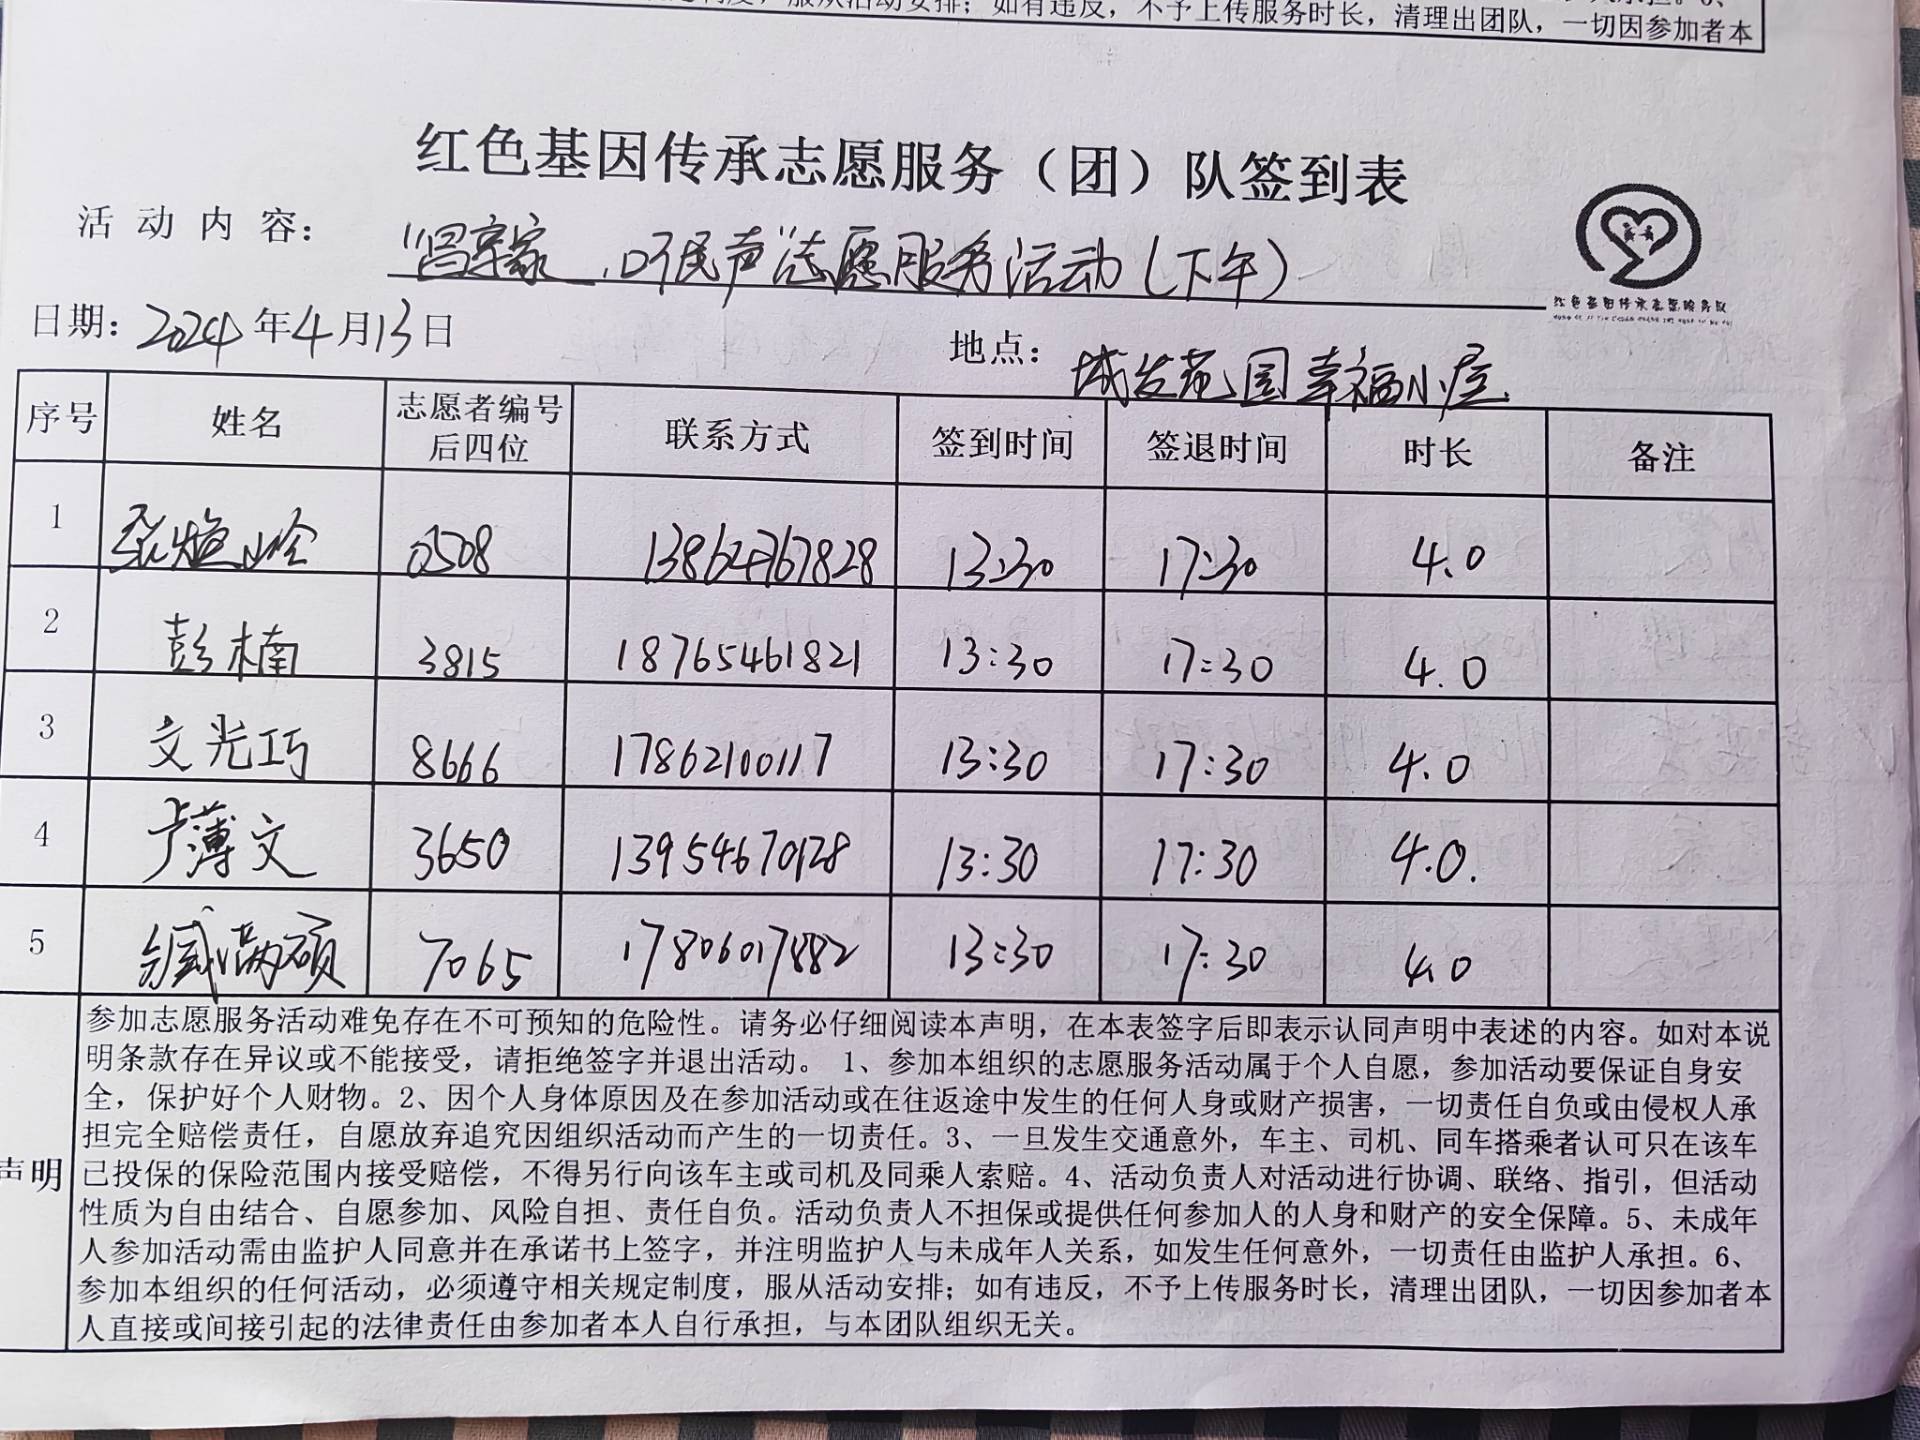 不予上传服务时长，清理出团队，一切因参加者本
红色基因传承志愿服务（团）队签到表
活动内容： 民声"志愿服务活动（下午）
红色基因传承志愿服务队
日期：2024年4月13日
地点： 城发苑园幸福小屋
序号 姓名 志愿者编号后四位 联系方式 签到时间 签退时间 时长 备注
1 0508 13864767828 13:30 17:30 4.0
2 彭楠 3815 18765461821 13:30 17:30 4.0
3 文光巧 8666 17862100117 13:30 17:30 4.0
4 卢薄文 3650 13954670128 13:30 17:30 4.0.
5 臧满硕 7065 17806017882 13:30 17:30 4.0
声明
参加志愿服务活动难免存在不可预知的危险性。请务必仔细阅读本声明，在本表签字后即表示认同声明中表述的内容。如对本说
明条款存在异议或不能接受，请拒绝签字并退出活动。 1、参加本组织的志愿服务活动属于个人自愿，参加活动要保证自身安
全，保护好个人财物。2、因个人身体原因及在参加活动或在往返途中发生的任何人身或财产损害，一切责任自负或由侵权人承
担完全赔偿责任，自愿放弃追究因组织活动而产生的一切责任。3、一旦发生交通意外，车主、司机、同车搭乘者认可只在该车
已投保的保险范围内接受赔偿，不得另行向该车主或司机及同乘人索赔。4、活动负责人对活动进行协调、联络、指引，但活动
性质为自由结合、自愿参加、风险自担、责任自负。活动负责人不担保或提供任何参加人的人身和财产的安全保障。5、未成年
人参加活动需由监护人同意并在承诺书上签字，并注明监护人与未成年人关系，如发生任何意外，一切责任由监护人承担。6、
参加本组织的任何活动，必须遵守相关规定制度，服从活动安排；如有违反，不予上传服务时长，清理出团队，一切因参加者本
人直接或间接引起的法律责任由参加者本人自行承担，与本团队组织无关。